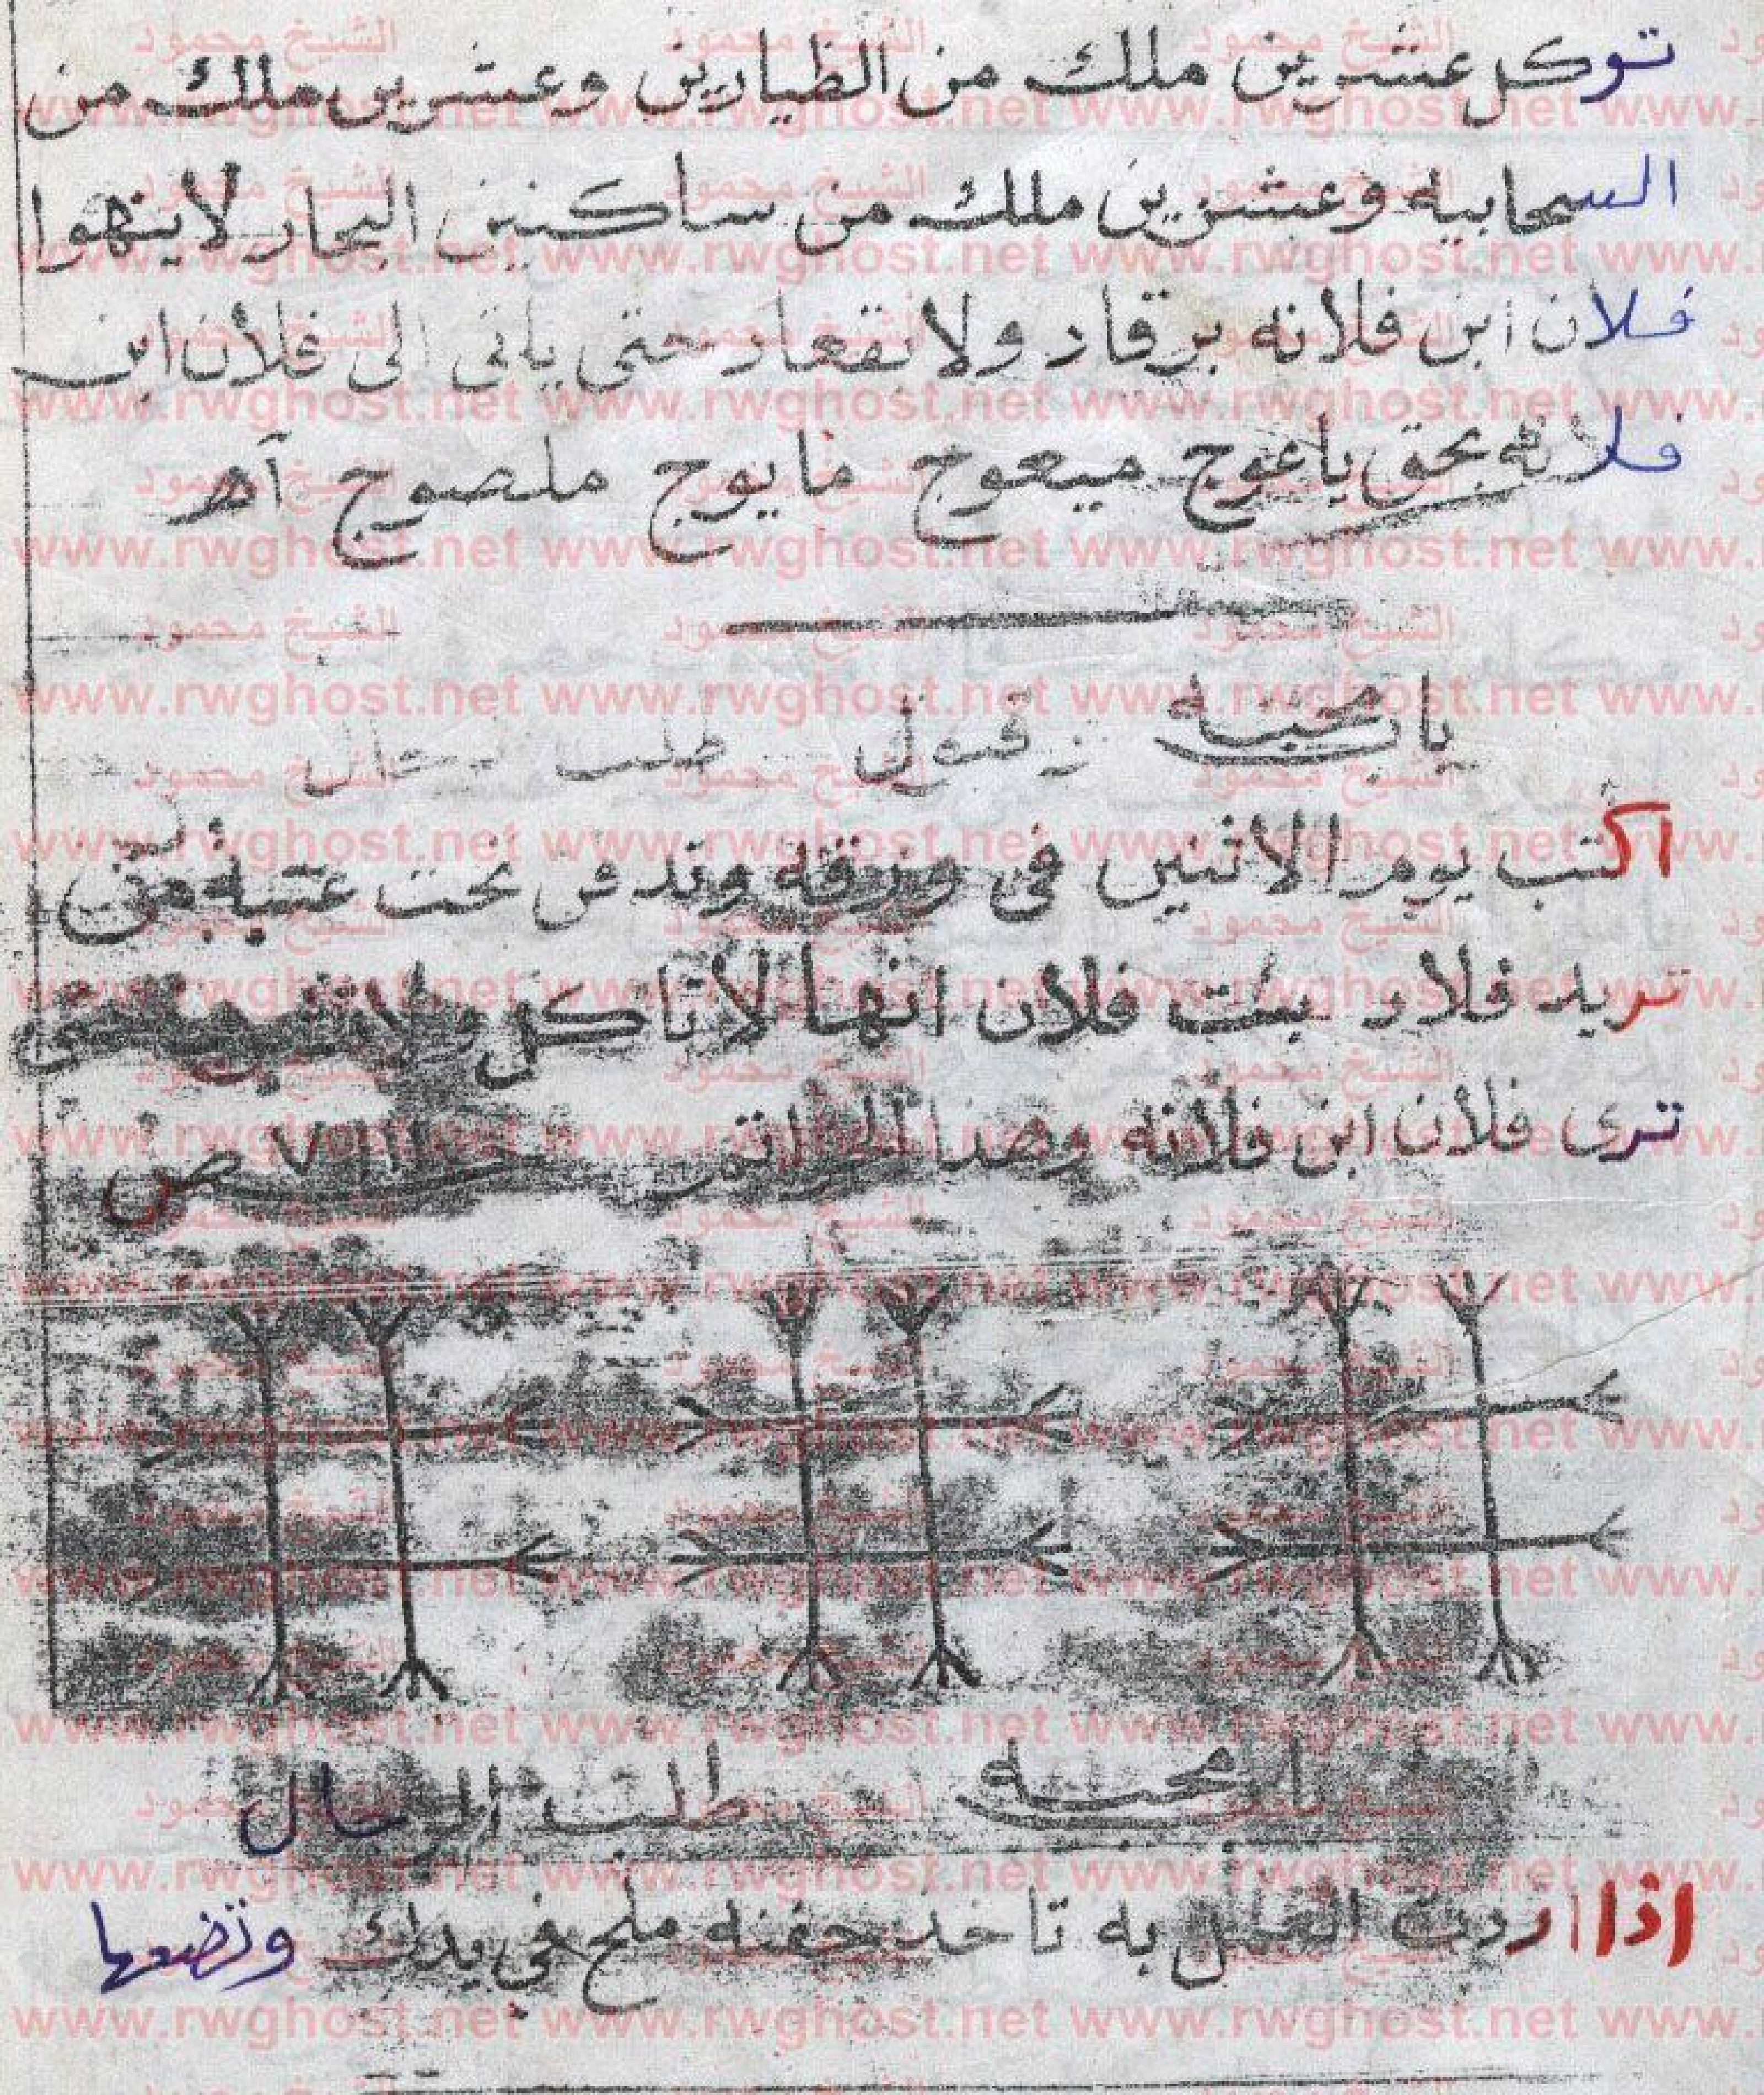 توكل عشرين ملك من الطيارين وعشرين ملك من
السحابيه وعشرين ملك من ساكنين البحار لا يتهوا
فلان ابن فلانه برقاد ولا بقعاد حتى ياتى الى فلان ابن
فلانه بحق ياعوج ميعوج مايوج ملصوج آه
باب محبته طلب
اكتب يوم الاثنين فى ورقة وتدفن تحت عتبة من
تريد فلان بنت فلان انها لا تاكل ولا حتى
ترى فلان ابن فلانه وهذا الخاتم
محبته طلب
اذا اردت العمل به تاخذ حفنه ملح في يدك وتضعها
الشيخ محمود
www.rwghost.net